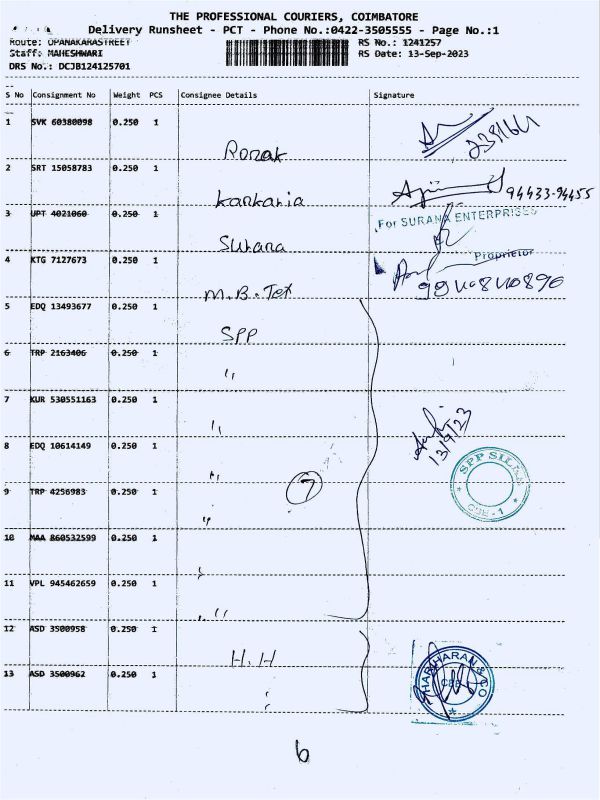 THE PROFESSIONAL COURIERS, COIMBATORE
Delivery Runsheet - PCT - Phone No.:0422-3505555 - Page No.:1
Route: OPANAKARASTREET
RS No.: 1241257
Staff: MAHESHWARI
RS Date: 13-Sep-2023
DRS No.: DCJB124125701
S No Consignment No Weight PCS Consignee Details Signature
1 SVK 60380098 0.250 1
Ronak
2 SRT 15058783 0.250 1
Kankaria 94433-94455
3 UPT 4021060 0.250 1
For SURANA ENTERPRISES
Surana
Proprietor
4 KTG 7127673 0.250 1
M.B.Tex
5 EDQ 13493677 0.250 1
SPP
6 TRP 2163406 0.250 1
"
7 KUR 530551163 0.250 1
"
13/9/23
8 EDQ 10614149 0.250 1
"
SPP SILKS
CBE-1
7
9 TRP 4256983 0.250 1
"
10 MAA 860532599 0.250 1
11 VPL 945462659 0.250 1
"
12 ASD 3500958 0.250 1
H.H
HARIHARAN & CO
CBE
13 ASD 3500962 0.250 1
6